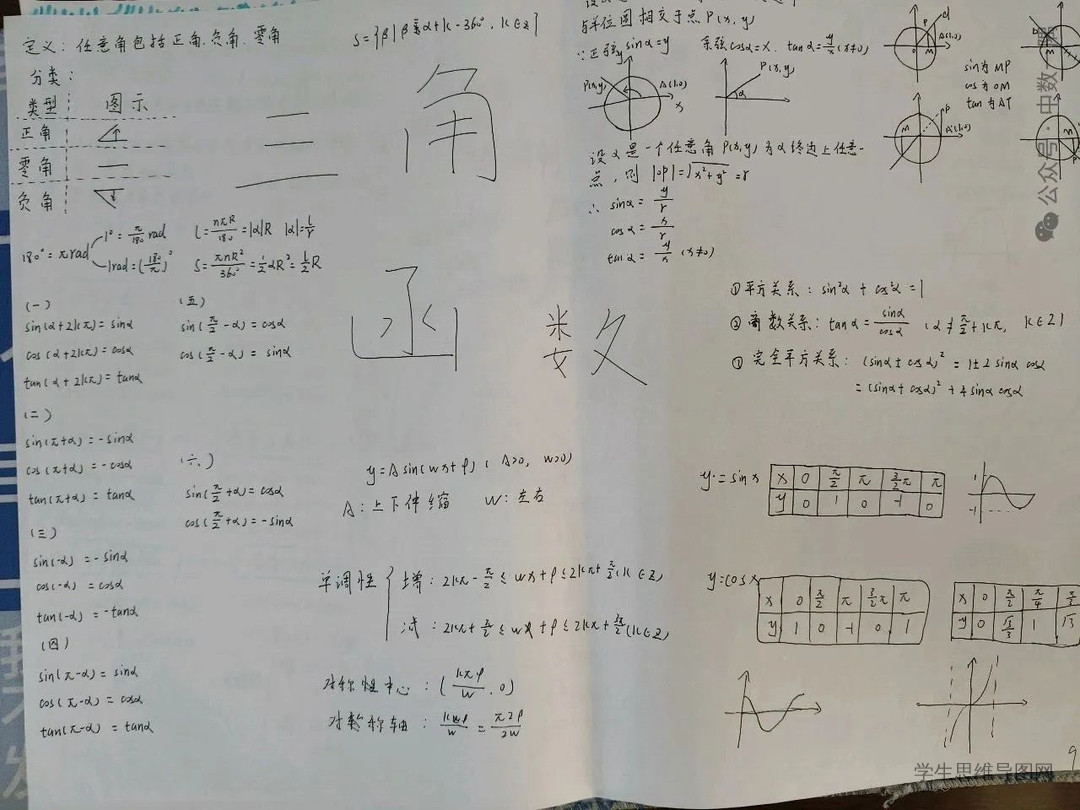 定义：任意角包括正角.负角.零角
S={β|β=α+k·360°，k∈Z}
分类：
类型 图示
正角
零角
负角
三 角
函 数
180°=πrad
1°=π/180 rad
1rad=(180/π)°
l=nπR/180=|α|R |α|=l/r
S=πnR²/360°=1/2αR²=l/2R
(一)
sin(α+2kπ)=sinα
cos(α+2kπ)=cosα
tan(α+2kπ)=tanα
(二)
sin(π+α)=-sinα
cos(π+α)=-cosα
tan(π+α)=tanα
(三)
sin(-α)=-sinα
cos(-α)=cosα
tan(-α)=-tanα
(四)
sin(π-α)=sinα
cos(π-α)=cosα
tan(π-α)=tanα
(五)
sin(π/2-α)=cosα
cos(π/2-α)=sinα
(六)
sin(π/2+α)=cosα
cos(π/2+α)=-sinα
y=Asin(wx+φ)(A>0，w>0)
A：上下伸缩 W：左右
单调性
增：2kπ-π/2≤wx+φ≤2kπ+π/2(k∈Z)
减：2kπ+π/2≤wx+φ≤2kπ+3π/2(k∈Z)
对称性中心：(
,0)
对称轴：
与单位圆相交于点P(x,y)
∵正弦sinα=y 余弦cosα=x. tanα=y/x(x≠0)
P(x,y) A(1,0) x y
P(x,y) α
P A(1,0) O M
sin为MP
cos为OM
tan为AT
M P A(1,0)
M
设α是一个任意角P(x,y)为α终边上任意一
点，则|OP|=√x²+y²=r
∴sinα=y/r
cosα=x/r
tanα=y/x (x≠0)
①平方关系：sin²α+cos²α=1
②商数关系：tanα=sinα/cosα (α≠π/2+kπ，k∈Z)
①完全平方关系：(sinα±cosα)²=1±2sinαcosα
=(sinα+cosα)²+4sinαcosα
y=sinx
x 0 π/2 π 3/2π π
y 0 1 0 -1 0
1
-1
y=cosx
x 0 π/2 π 3/2π π
y 1 0 -1 0 1
x 0 π/2 π/4
y 0 √3/3 1 √3
9
公众号·中数
学生思维导图网